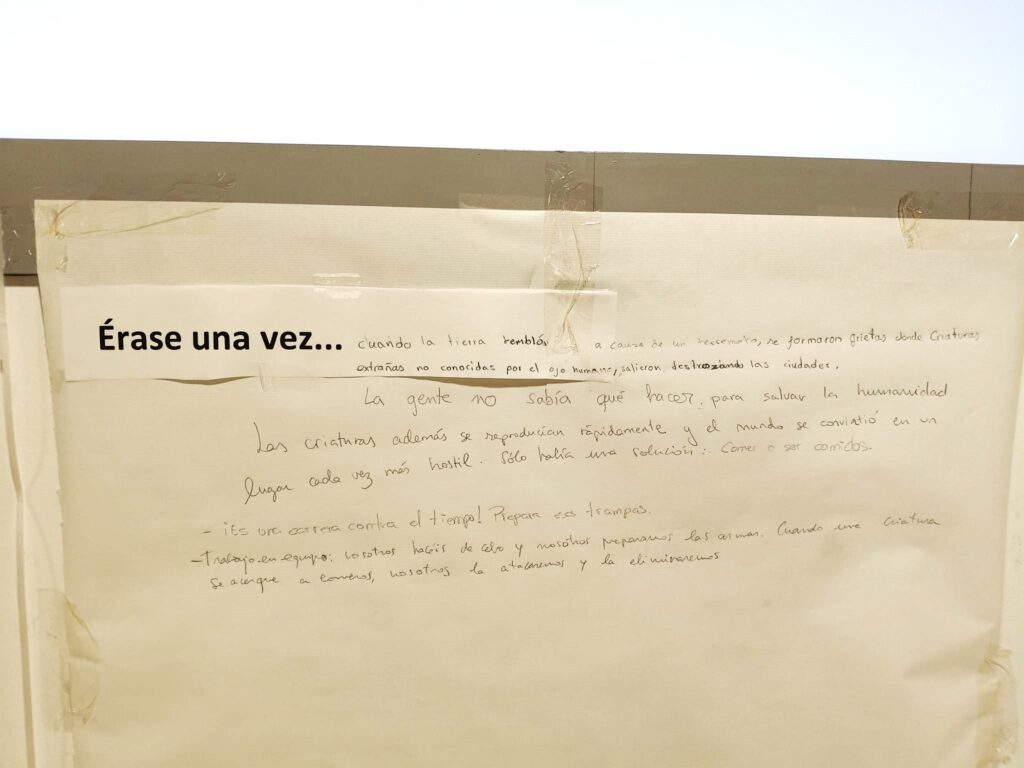 Érase una vez... cuando la tierra tembló a causa de un terremoto, se formaron grietas donde criaturas
extrañas no conocidas por el ojo humano, salieron destrozando las ciudades.
La gente no sabía qué hacer para salvar la humanidad
Las criaturas además se reproducían rápidamente y el mundo se convirtió en un
lugar cada vez más hostil. Sólo había una solución: Comer o ser comidos.
- ¡Es una carrera contra el tiempo! Prepara esas trampas.
- Trabajo en equipo: vosotros hacéis de cebo y nosotros preparamos las armas. Cuando una criatura
se acerque a comeros, nosotros la atacaremos y la eliminaremos